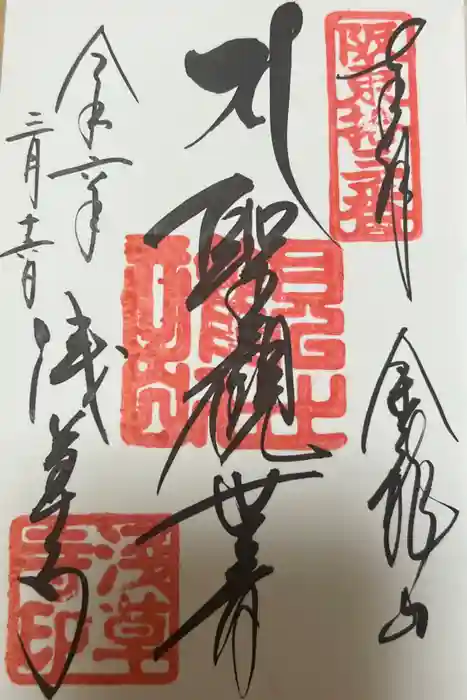 奉拝
金龍山
聖觀世音
令和六年
三月十日
浅草寺
阪東拾三番
浅草寺印